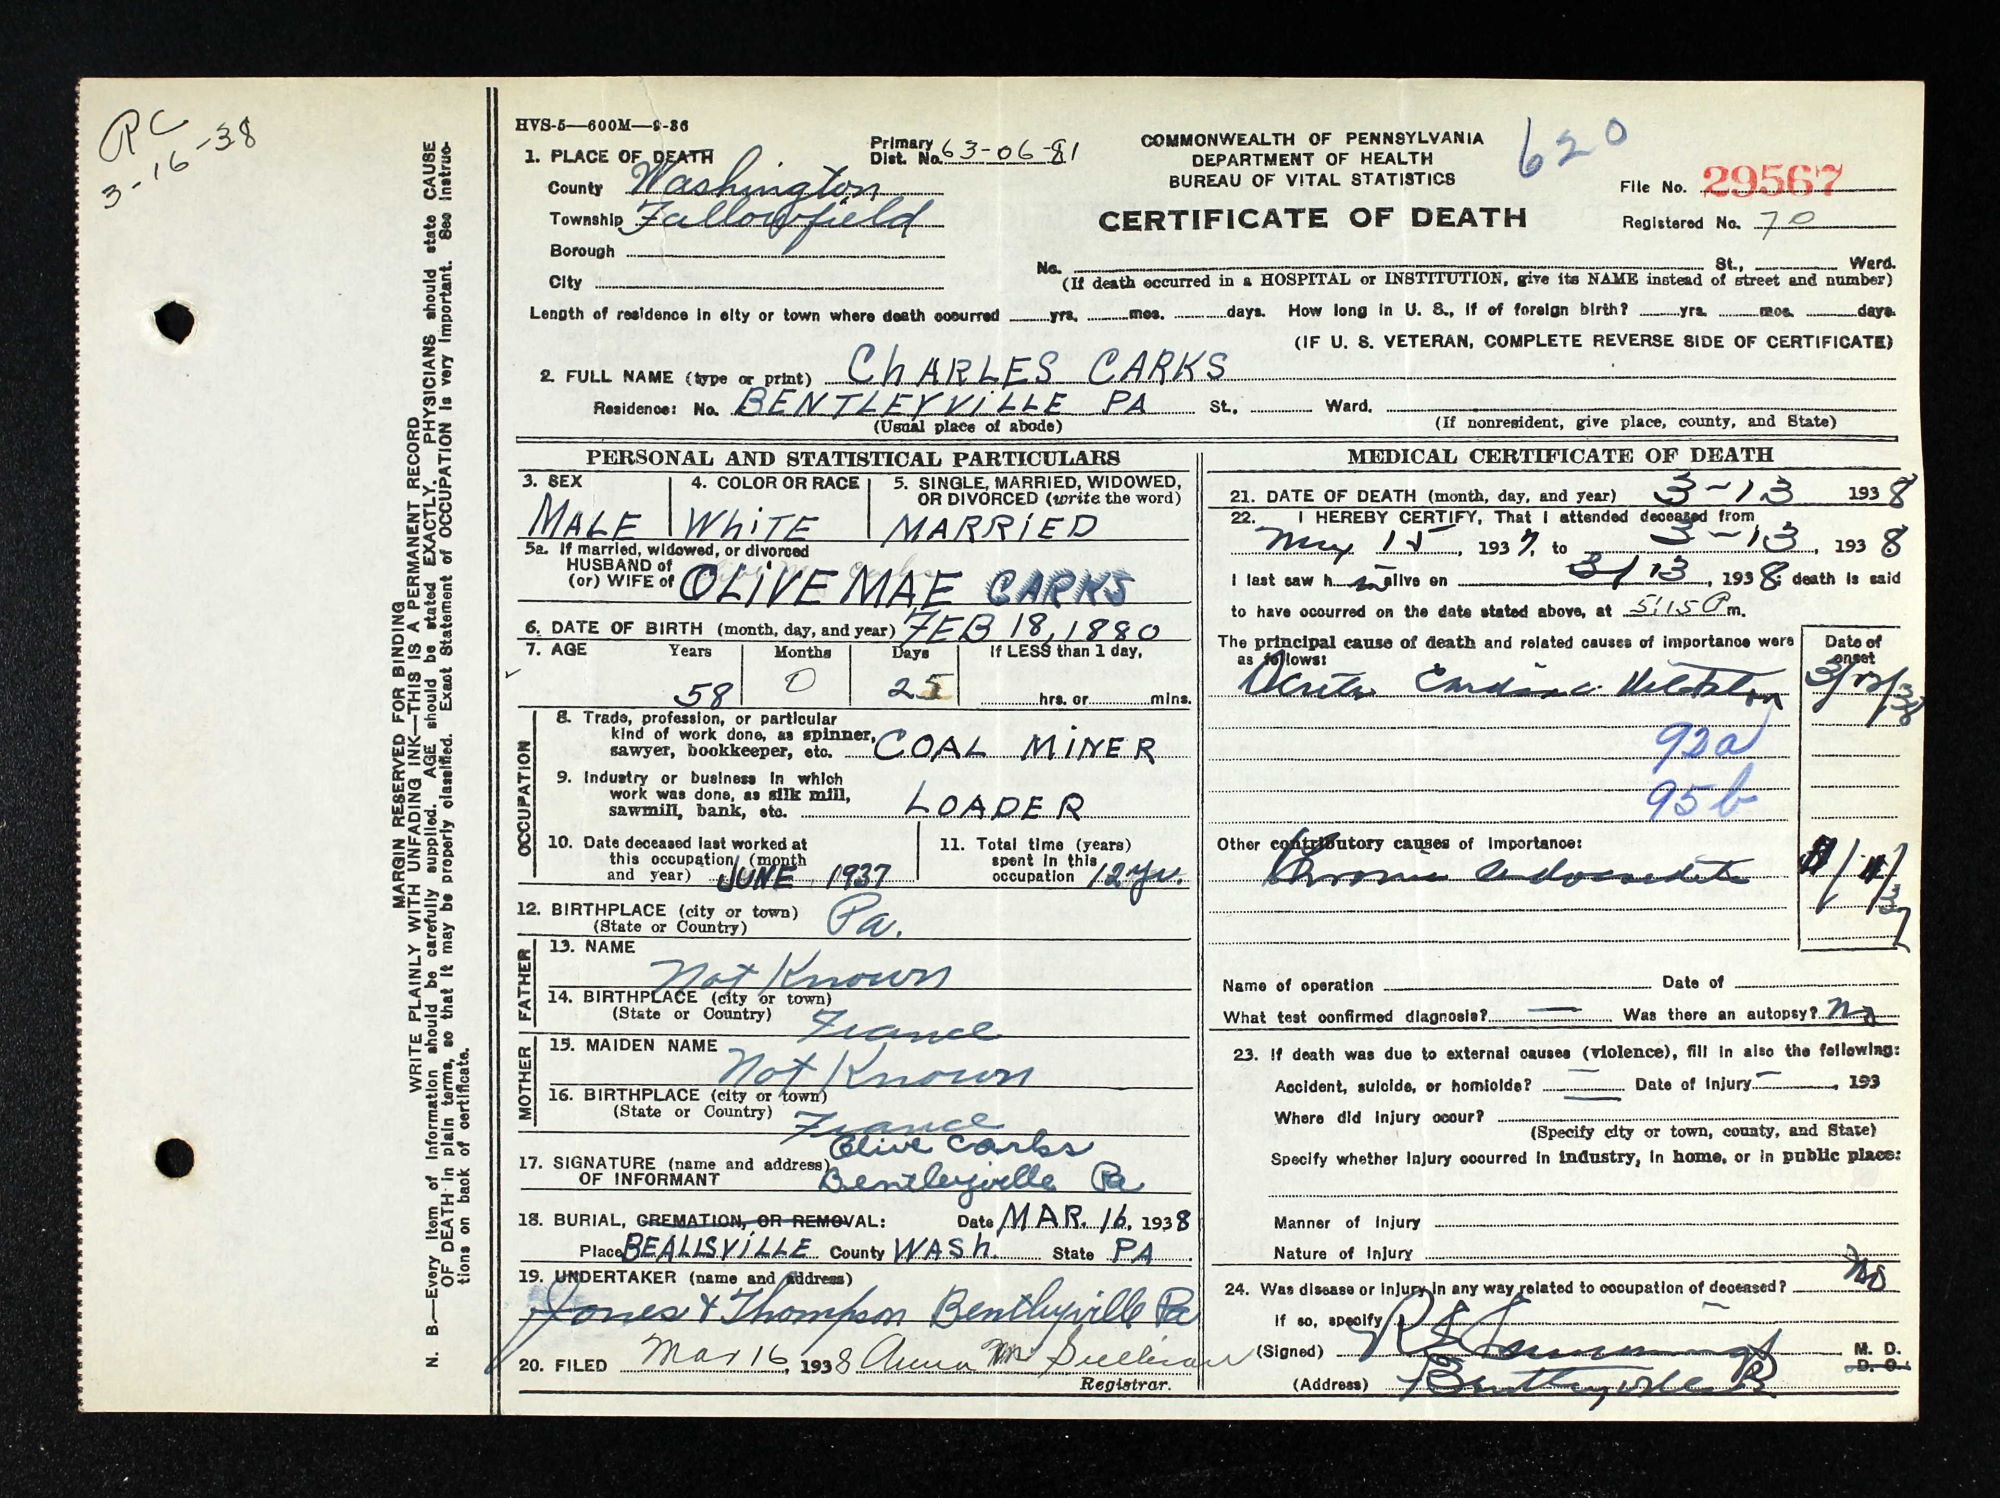 PC
3-16-38
MARGIN RESERVED FOR BINDING
WRITE PLAINLY WITH UNFADING INK—THIS IS A PERMANENT RECORD
N. B.—Every item of information should be carefully supplied. AGE should be stated EXACTLY. PHYSICIANS should state CAUSE
OF DEATH in plain terms, so that it may be properly classified. Exact Statement of OCCUPATION is very important. See instruc-
tions on back of certificate.
HVS-5—600M—9-36
1. PLACE OF DEATH
Primary Dist. No. 63-06-81
COMMONWEALTH OF PENNSYLVANIA
DEPARTMENT OF HEALTH
BUREAU OF VITAL STATISTICS
620
CERTIFICATE OF DEATH
File No. 29567
Registered No. 70
County Washington
Township Fallowfield
Borough
City
No. St., Ward.
(If death occurred in a HOSPITAL or INSTITUTION, give its NAME instead of street and number)
Length of residence in city or town where death occurred yrs. mos. days. How long in U. S., if of foreign birth? yrs. mos. days.
(IF U. S. VETERAN, COMPLETE REVERSE SIDE OF CERTIFICATE)
2. FULL NAME (type or print) CHARLES CARKS
Residence: No. BENTLEYVILLE PA St., Ward.
(Usual place of abode) (If nonresident, give place, county, and State)
PERSONAL AND STATISTICAL PARTICULARS
3. SEX
MALE
4. COLOR OR RACE
WHITE
5. SINGLE, MARRIED, WIDOWED,
OR DIVORCED (write the word)
MARRIED
5a. If married, widowed, or divorced
HUSBAND of
(or) WIFE of OLIVE MAE CARKS
6. DATE OF BIRTH (month, day, and year) FEB 18, 1880
7. AGE Years Months Days If LESS than 1 day,
58 0 25 hrs. or mins.
OCCUPATION
8. Trade, profession, or particular
kind of work done, as spinner,
sawyer, bookkeeper, etc. COAL MINER
9. Industry or business in which
work was done, as silk mill,
sawmill, bank, etc. LOADER
10. Date deceased last worked at
this occupation (month
and year) JUNE, 1937
11. Total time (years)
spent in this
occupation 12 yrs.
12. BIRTHPLACE (city or town)
(State or Country) Pa.
FATHER
13. NAME
Not Known
14. BIRTHPLACE (city or town)
(State or Country) France
MOTHER
15. MAIDEN NAME
Not Known
16. BIRTHPLACE (city or town)
(State or Country) France
17. SIGNATURE (name and address)
OF INFORMANT
Olive Carks
Bentleyville Pa
18. BURIAL, CREMATION, OR REMOVAL: Date MAR. 16, 1938
Place BEALLSVILLE County WASH. State PA
19. UNDERTAKER (name and address)
Jones & Thompson Bentleyville Pa
20. FILED Mar 16, 1938 Anna Sullivan
Registrar.
MEDICAL CERTIFICATE OF DEATH
21. DATE OF DEATH (month, day, and year) 3-13 1938
22. I HEREBY CERTIFY, That I attended deceased from
15, 1937, to 3-13, 1938
I last saw him alive on 3/13, 1938; death is said
to have occurred on the date stated above, at 5:15 P m.
The principal cause of death and related causes of importance were
as follows:
Date of
onset
Acute Cardiac Dilatation
92a
95b
Other contributory causes of importance:
Chronic endocarditis
Name of operation Date of
What test confirmed diagnosis? — Was there an autopsy? No
23. If death was due to external causes (violence), fill in also the following:
Accident, suicide, or homicide? — Date of injury — , 193
Where did injury occur?
(Specify city or town, county, and State)
Specify whether injury occurred in industry, in home, or in public place:
Manner of injury
Nature of injury
24. Was disease or injury in any way related to occupation of deceased? No
If so, specify —
(Signed) M. D.
D. O.
(Address) Bentleyville Pa